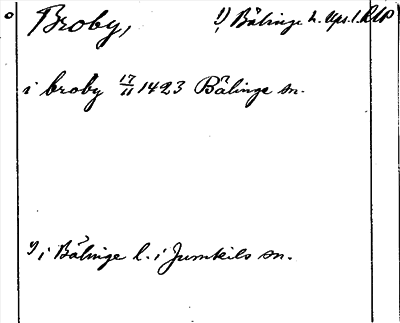 Broby, 1) Bälinge h. Ups. l. RAP
i broby 17/11 1423 Bälinge sn.
1) i Bälinge l. i Jumkils sn.